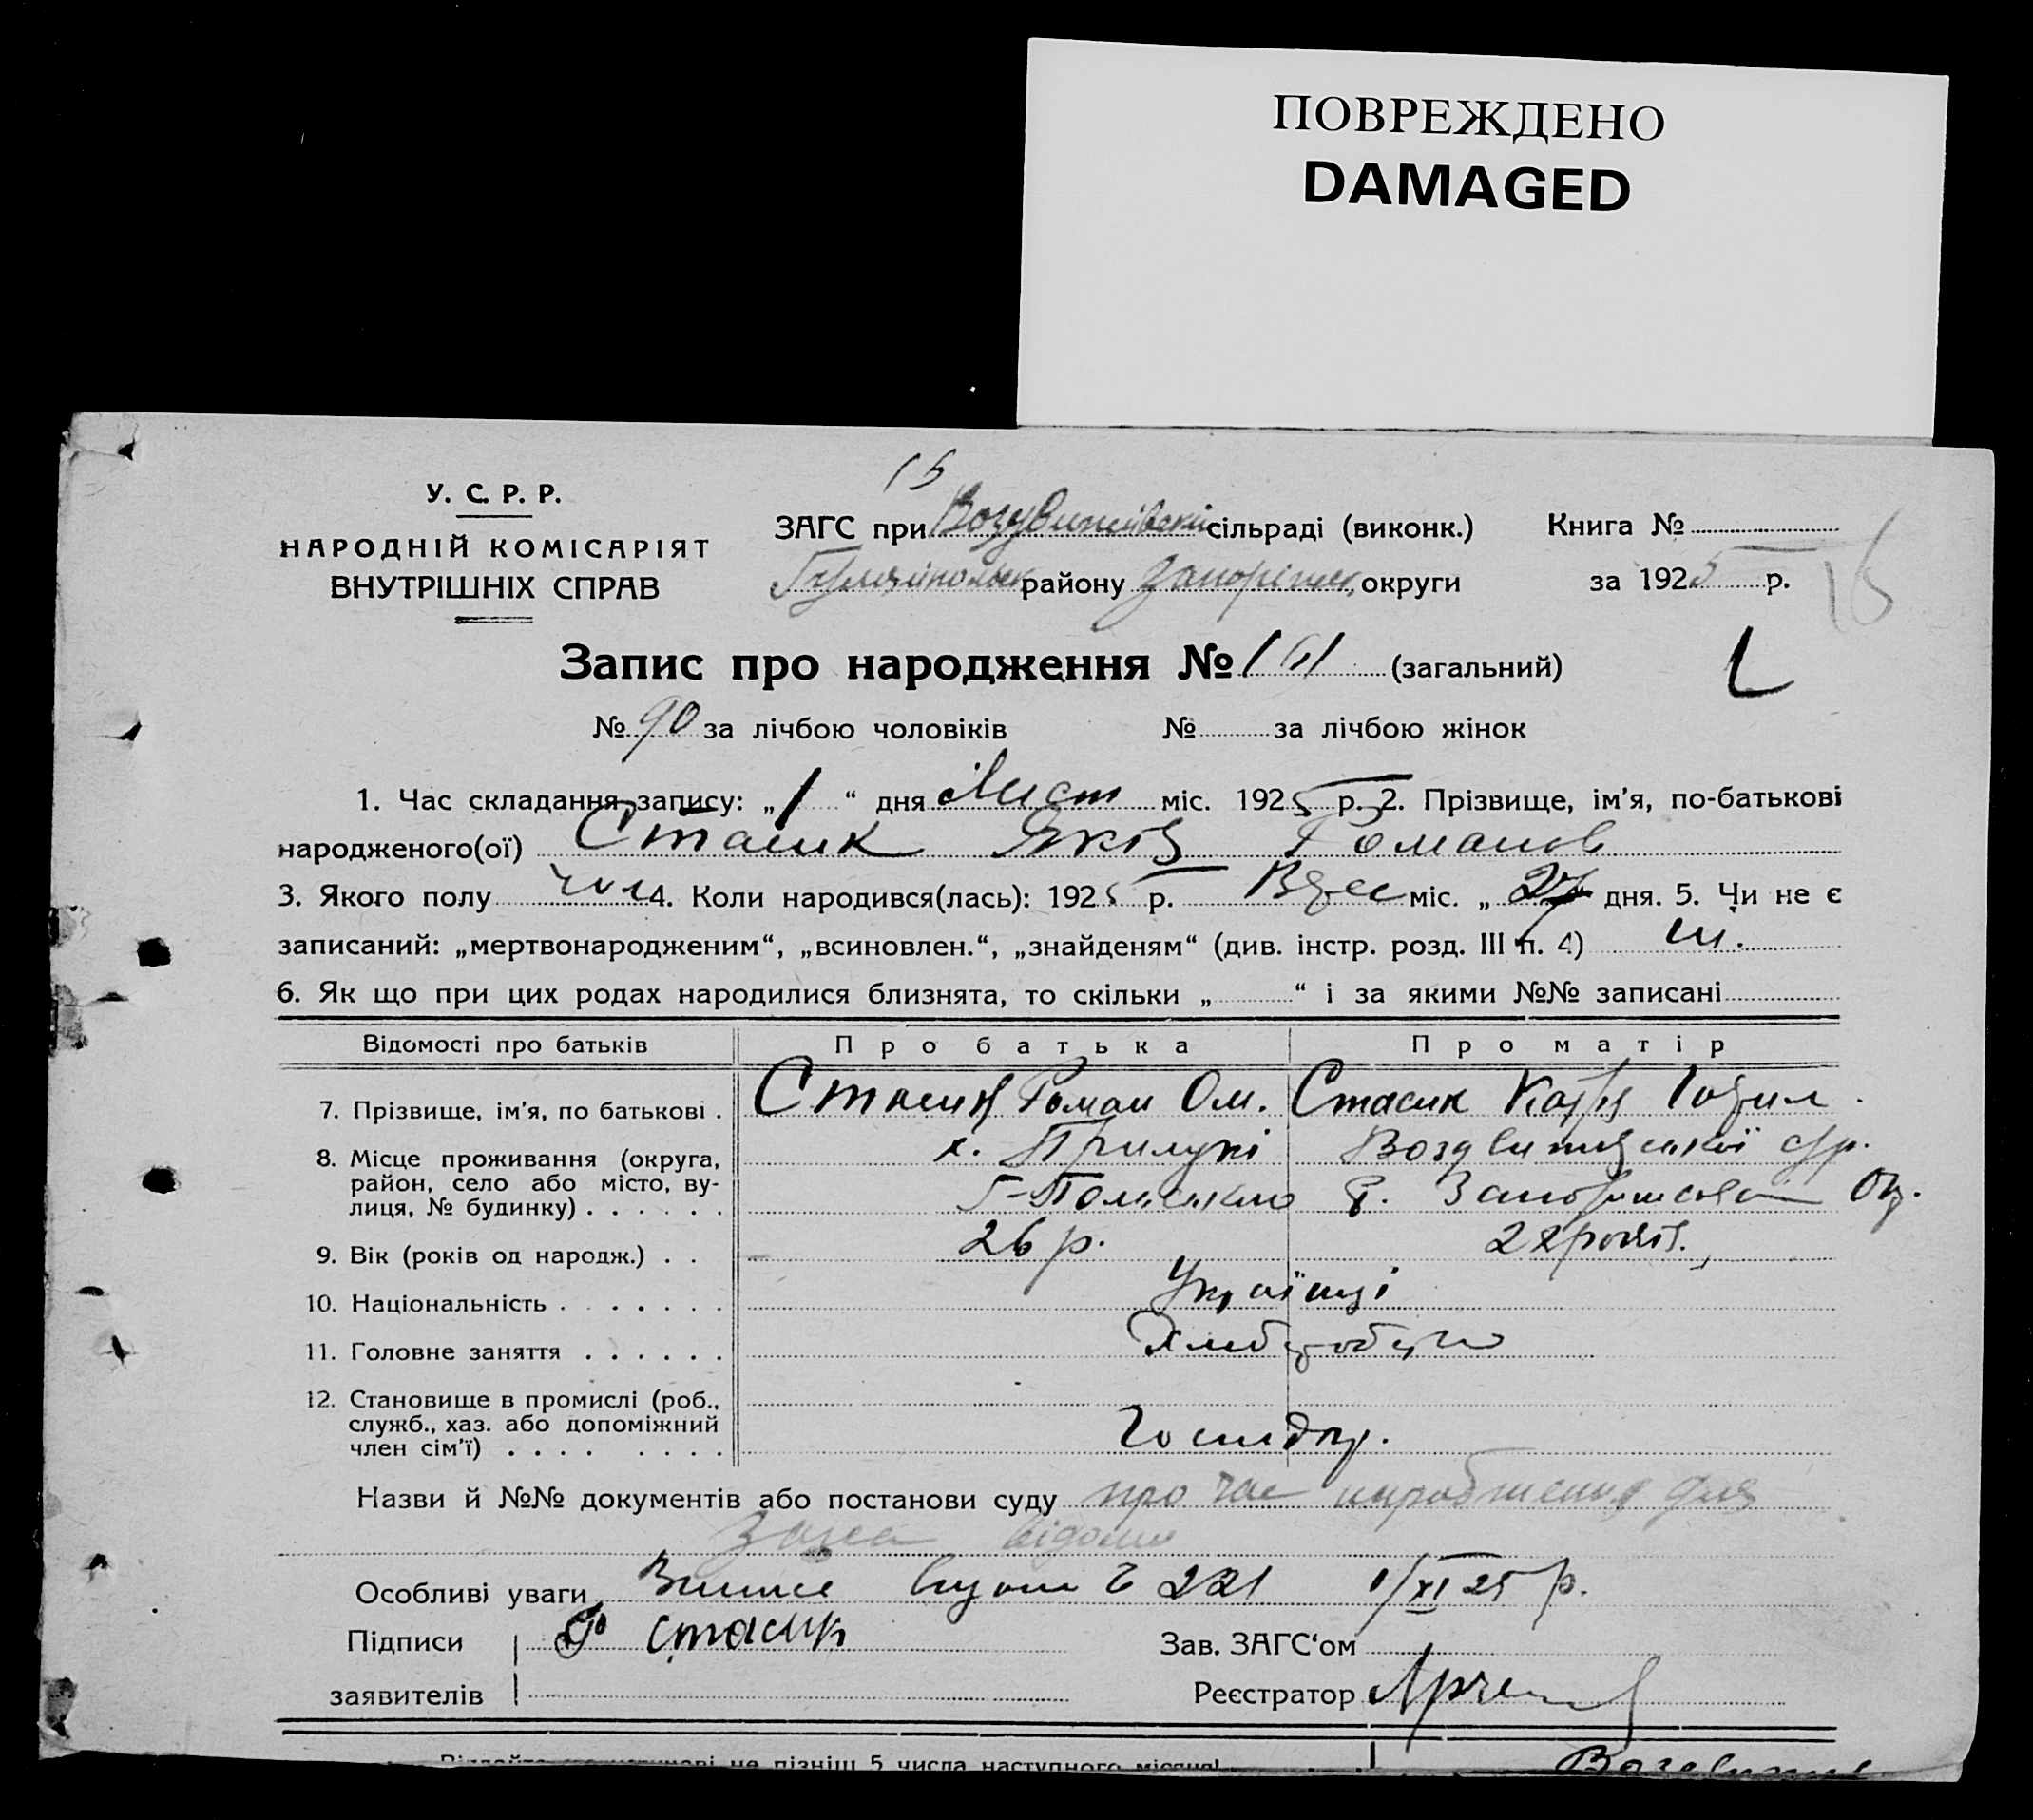 ПОВРЕЖДЕНО
DAMAGED
15
У. С. Р. Р.
НАРОДНІЙ КОМІСАРІЯТ
ВНУТРІШНІХ СПРАВ
ЗАГС при Воздвижівській сільраді (виконк.) Книга №
Гуляйпольськ району Запоріжск. округи за 1925 р.
16
Запис про народження № 161 (загальний)
№ 90 за лічбою чоловіків № за лічбою жінок
1. Час складання запису: „1“ дня Лист міс. 1925 р. 2. Прізвище, ім'я, по-батькові
народженого(ої) Стасик Яків Романов
3. Якого полу чол 4. Коли народився(лась): 1925 р. міс. „27 дня. 5. Чи не є
записаний: „мертвонародженим“, „всиновлен.“, „знайденям“ (див. інстр. розд. III п. 4) ні.
6. Як що при цих родах народилися близнята, то скільки „ “ і за якими №№ записані
Відомості про батьків Про батька Про матір
7. Прізвище, ім'я, по батькові . Стасик Роман Ом. Стасик Катя
8. Місце проживання (округа, район, село або місто, вулиця, № будинку) . . . . . . х. Прилукі Воздвижівської с/р.
Г-Польського Р. Запоріжської Окр.
9. Вік (років од народж.) . . 26 р. 22 років.
10. Національність . . . . . . . Українці
11. Головне заняття . . . . . . Хлібороби
12. Становище в промислі (роб., служб., хаз. або допоміжний член сім'ї) . . . . . . . . Господар.
Назви й №№ документів або постанови суду про час народження для
Загса відомо
Особливі уваги 221 1/XI 25 р.
Підписи Стасик Зав. ЗАГС'ом
заявителів Реєстратор
не пізніш 5 числа наступного місяця!